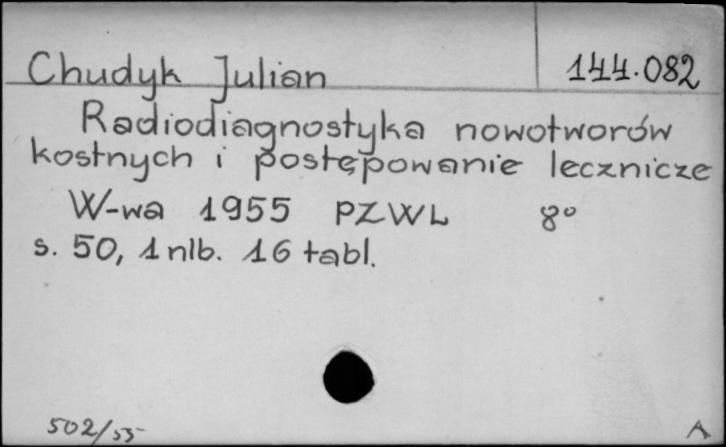 Chudyk Julian 144.082
Radiodiagnostyka nowotworów
kostnych i postępowanie lecznicze
W-wa 1955 PZWL 8°
s. 50, 1 nlb. 16 tabl.
502/55 A